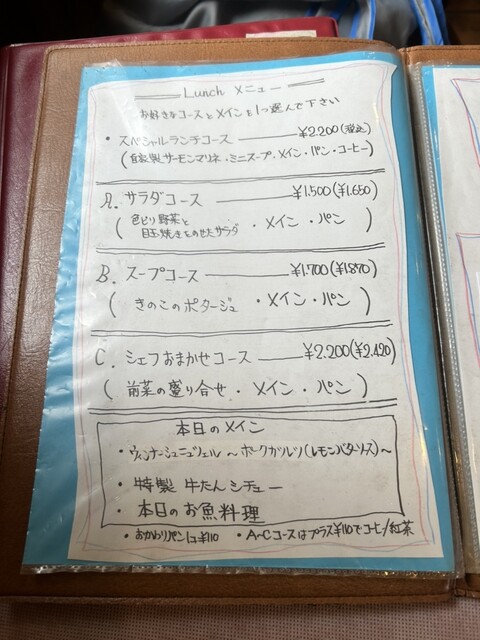 Lunch メニュー
お好きなコースとメインを1つ選んで下さい
・スペシャルランチコース ¥2.200(税込)
(自家製サーモンマリネ・ミニスープ・メイン・パン・コーヒー)
A. サラダコース ¥1.500(¥1.650)
(色どり野菜と
目玉焼きをのせたサラダ ・メイン・パン)
B. スープコース ¥1.700(¥1870)
(きのこのポタージュ ・メイン・パン)
C. シェフおまかせコース ¥2.200(¥2.420)
(前菜の盛り合せ・メイン・パン)
本日のメイン
・ウィンナーシュニッツェル ～ポークカツレツ(レモンバターソース)～
・特製 牛たんシチュー
・本日のお魚料理
・おかわりパン1コ¥110 ・A~Cコースはプラス¥110でコーヒー/紅茶